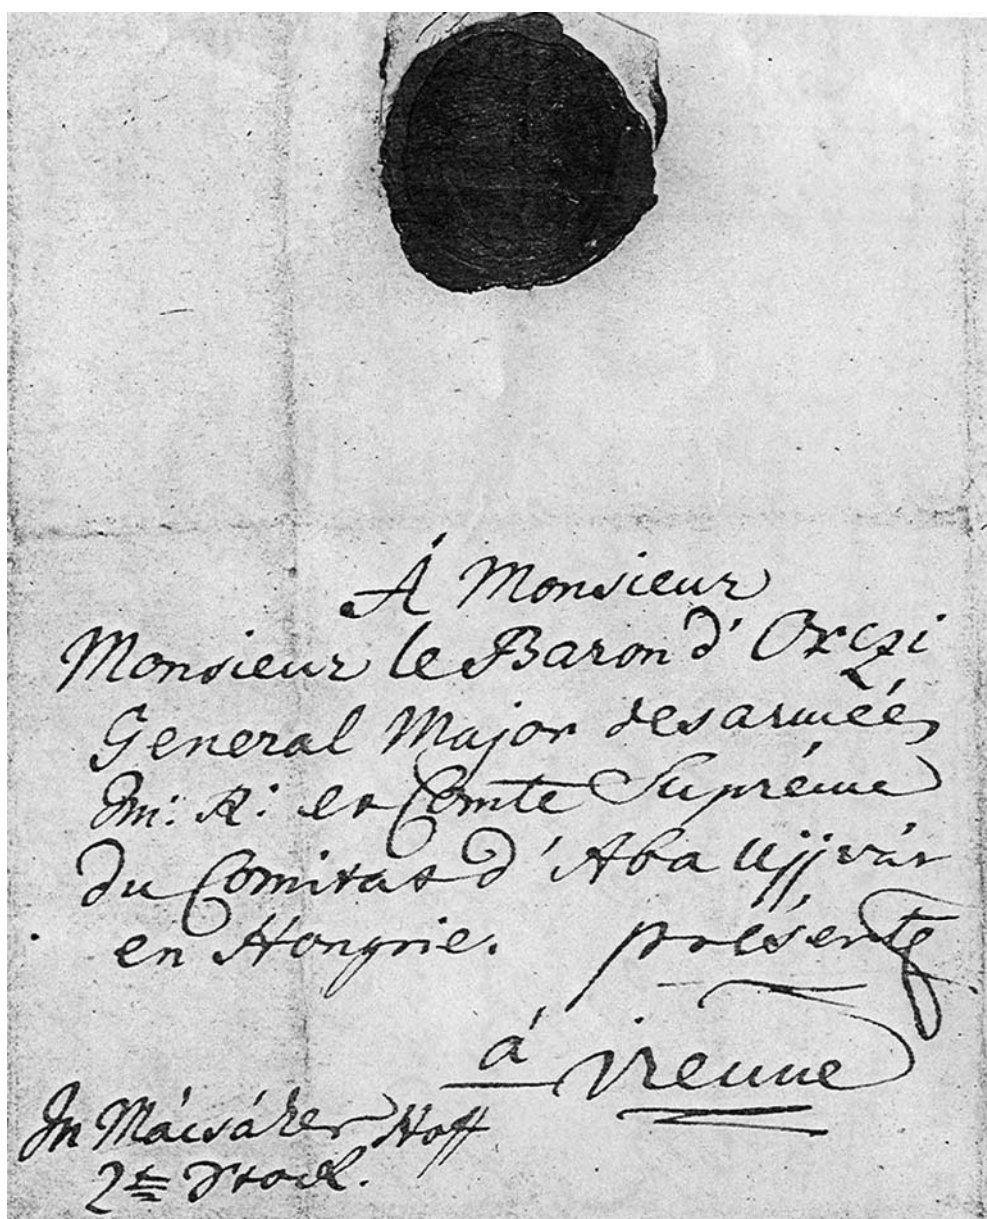 Á Monsieur
Monsieur le Baron d' Orczi
General Major des armées
Im: R: et Comte Supréme
du Comitat d' Aba Ujjvár
en Hongrie. présente
á Vienne
In Mácsáker Hoff
2te Stock.